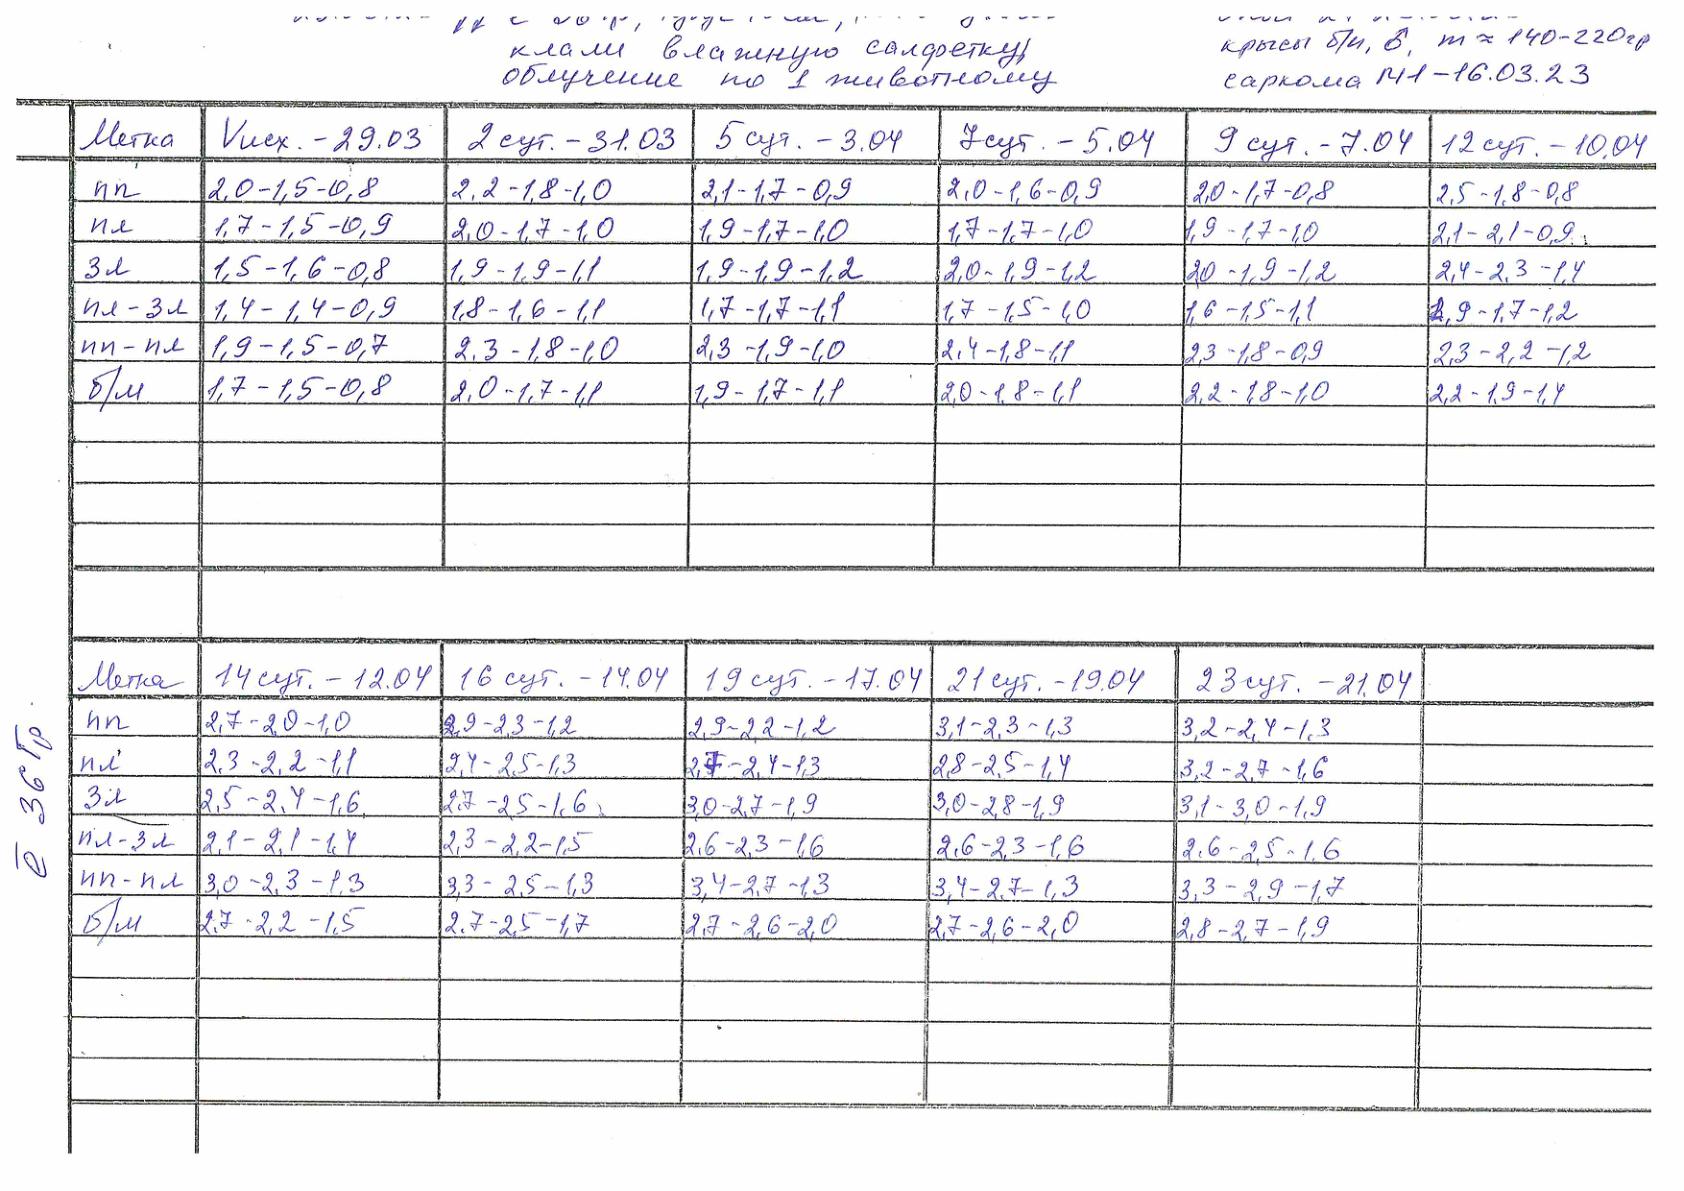 клали влажную салфетку,
облучение по 1 животному
крысы б/п, ♂, m ≈ 140-220гр
саркома М1 - 16.03.23
Метка Vисх. - 29.03 2 сут. - 31.03 5 сут. - 3.04 7 сут. - 5.04 9 сут. - 7.04 12 сут. - 10.04
пп 2,0-1,5-0,8 2,2-1,8-1,0 2,1-1,7-0,9 2,0-1,6-0,9 2,0-1,7-0,8 2,5-1,8-0,8
пл 1,7-1,5-0,9 2,0-1,7-1,0 1,9-1,7-1,0 1,7-1,7-1,0 1,9-1,7-1,0 2,1-2,1-0,9
Зл 1,5-1,6-0,8 1,9-1,9-1,1 1,9-1,9-1,2 2,0-1,9-1,2 2,0-1,9-1,2 2,4-2,3-1,4
пл-Зл 1,4-1,4-0,9 1,8-1,6-1,1 1,7-1,7-1,1 1,7-1,5-1,0 1,6-1,5-1,1 1,9-1,7-1,2
пп-пл 1,9-1,5-0,7 2,3-1,8-1,0 2,3-1,9-1,0 2,4-1,8-1,1 2,3-1,8-0,9 2,3-2,2-1,2
б/м 1,7-1,5-0,8 2,0-1,7-1,1 1,9-1,7-1,1 2,0-1,8-1,1 2,2-1,8-1,0 2,2-1,9-1,4
Метка 14 сут. - 12.04 16 сут. - 14.04 19 сут. - 17.04 21 сут. - 19.04 23 сут. - 21.04
пп 2,7-2,0-1,0 2,9-2,3-1,2 2,9-2,2-1,2 3,1-2,3-1,3 3,2-2,4-1,3
пл 2,3-2,2-1,1 2,4-2,5-1,3 2,7-2,4-1,3 2,8-2,5-1,4 3,2-2,7-1,6
Зл 2,5-2,4-1,6 2,7-2,5-1,6 3,0-2,7-1,9 3,0-2,8-1,9 3,1-3,0-1,9
пл-Зл 2,1-2,1-1,4 2,3-2,2-1,5 2,6-2,3-1,6 2,6-2,3-1,6 2,6-2,5-1,6
пп-пл 3,0-2,3-1,3 3,3-2,5-1,3 3,4-2,7-1,3 3,4-2,7-1,3 3,3-2,9-1,7
б/м 2,7-2,2-1,5 2,7-2,5-1,7 2,7-2,6-2,0 2,7-2,6-2,0 2,8-2,7-1,9
36 Гр